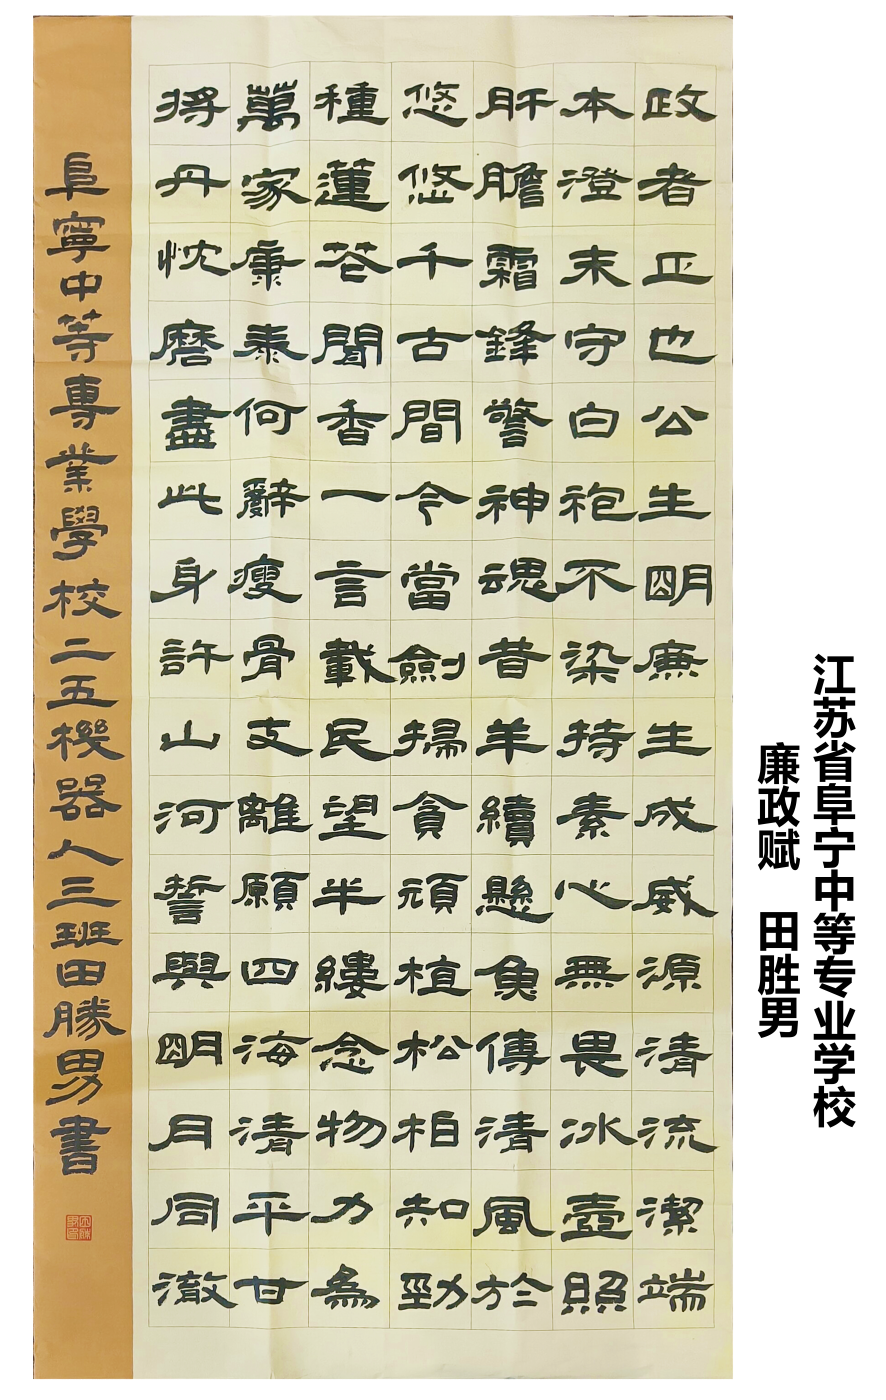 江苏省阜宁中等专业学校
廉政赋 田胜男
政者正也公生朙廉生成威源清流潔端
本澄末守白袍不染持素心無畏冰壺照
肝膽霜鋒警神魂昔羊續懸魚傳清風於
悠悠千古間今當劍掃貪頑植松柏知勁
種蓮花聞香一言載民望半縷念物力為
萬家康泰何辭瘦骨支離願四海清平甘
將丹忱磨盡此身許山河誓與朙月同澈
阜寧中等專業學校二五機器人三班田勝男書